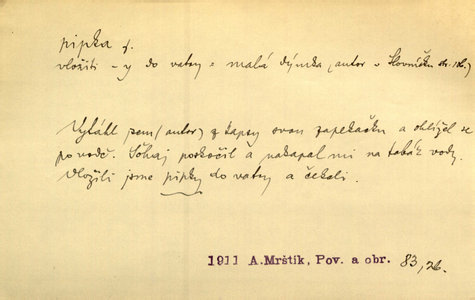 pipka f.
vložiti -y do vatry = malá dýmka, autor v Slovníčku
Vytáhl jsem (autor) z kapsy svou zapekačku a ohlížel se
po vodě. Šohaj poskočil a nakapal mi na tabák vody.
Vložili jsme pipky do vatry a čekali.
1911 A.Mrštík, Pov. a obr. 83, 26.